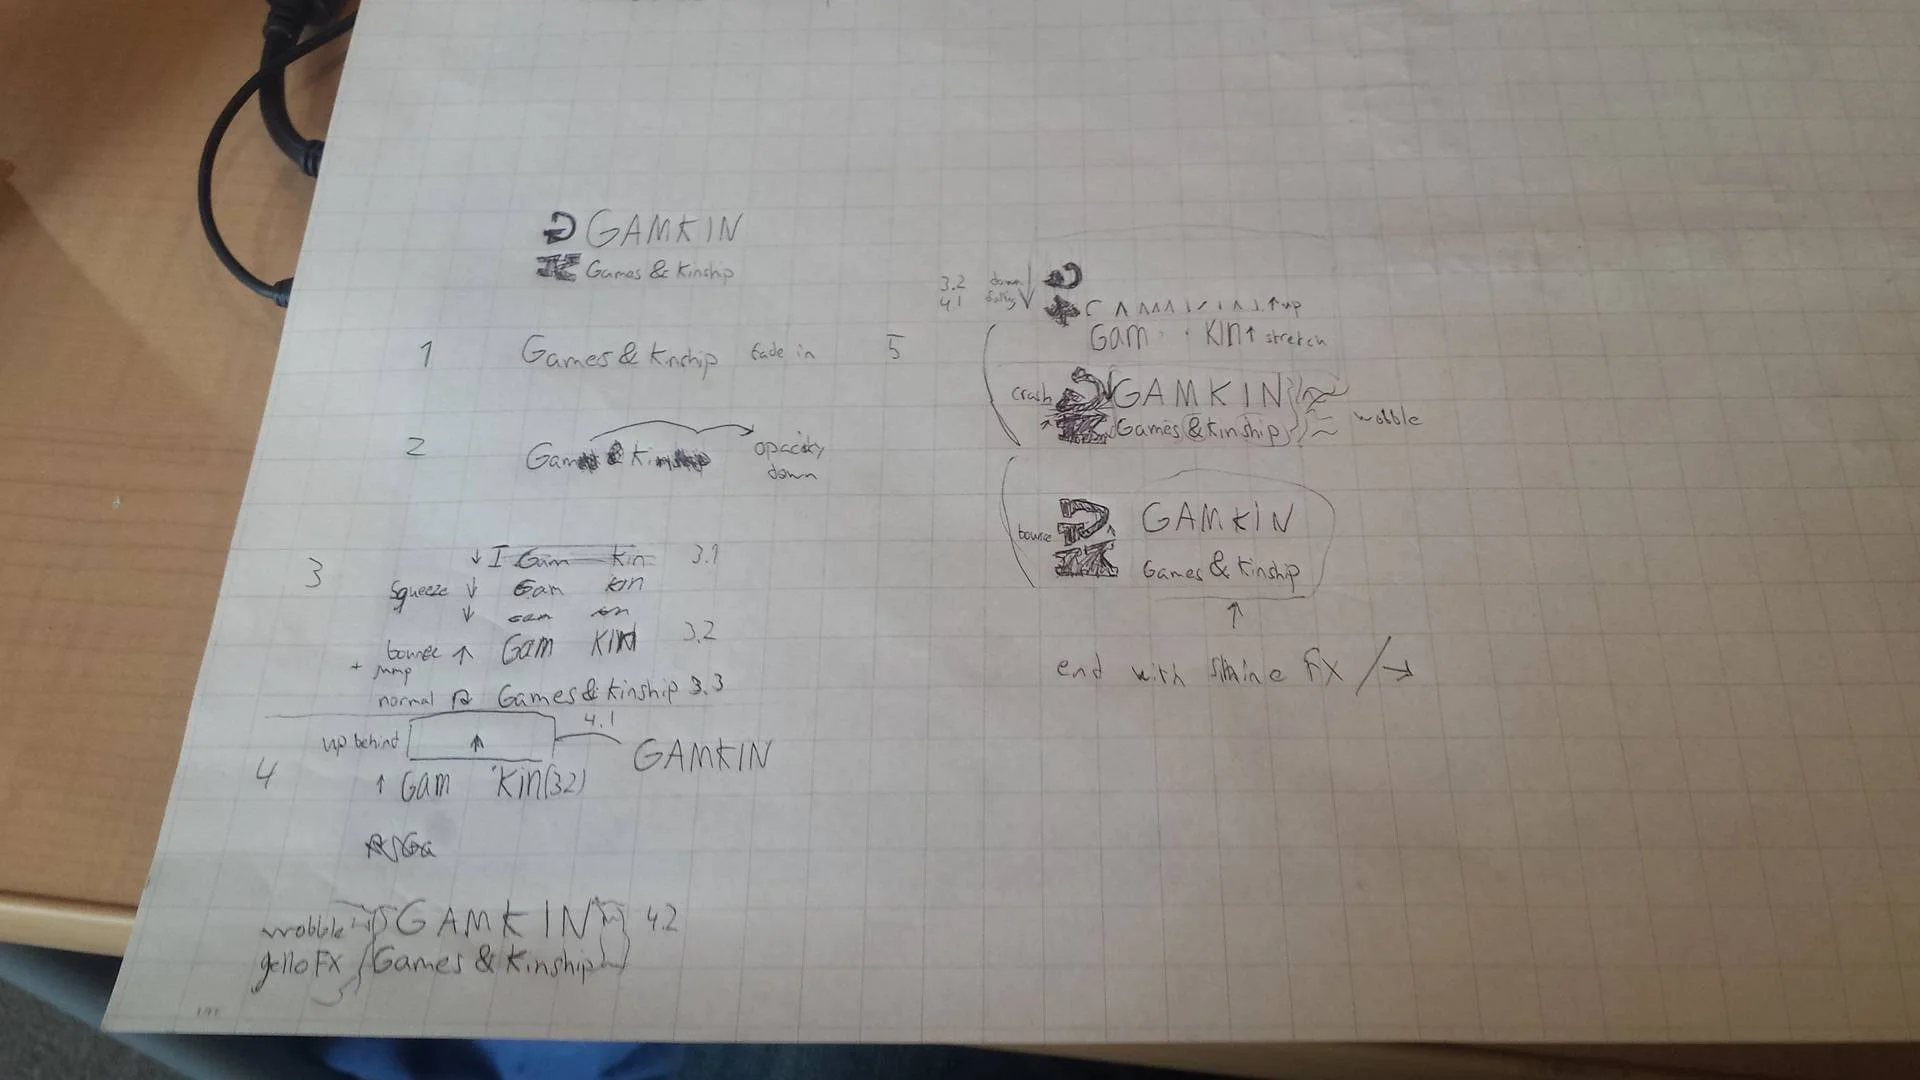 GAMKIN
Games & Kinship
1 Games & Kinship fade in
2 Gam & Kin opacity down
3
↓ I Gam Kin 3.1
Squeeze ↓ Gam Kin
↓
bounce ↑ Gam KIN 3.2
+ jump
normal Games & Kinship 3.3
4
4.1
up behind ↑ GAMKIN
↑ Gam Kin (3.2)
wobble GAMKIN 4.2
gello FX Games & Kinship
5
3.2 down
4.1 ↓
↑ up
Gam KIN ↑ stretch
crash GAMKIN
↑ Games & Kinship wobble
bounce ↑ GAMKIN
Games & Kinship
↑
end with Shine FX